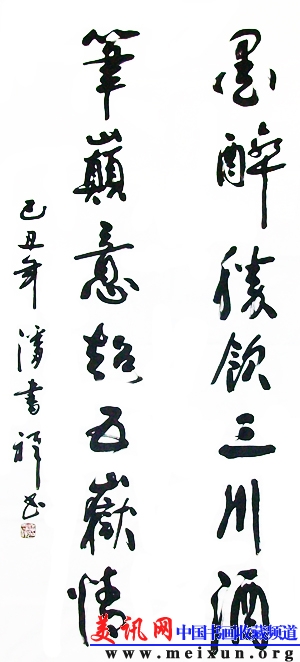 墨醉勝飲三川酒
筆巔意超五嶽情
己丑年潘書祥书
美讯网 中国书画收藏频道
www.meixun.org